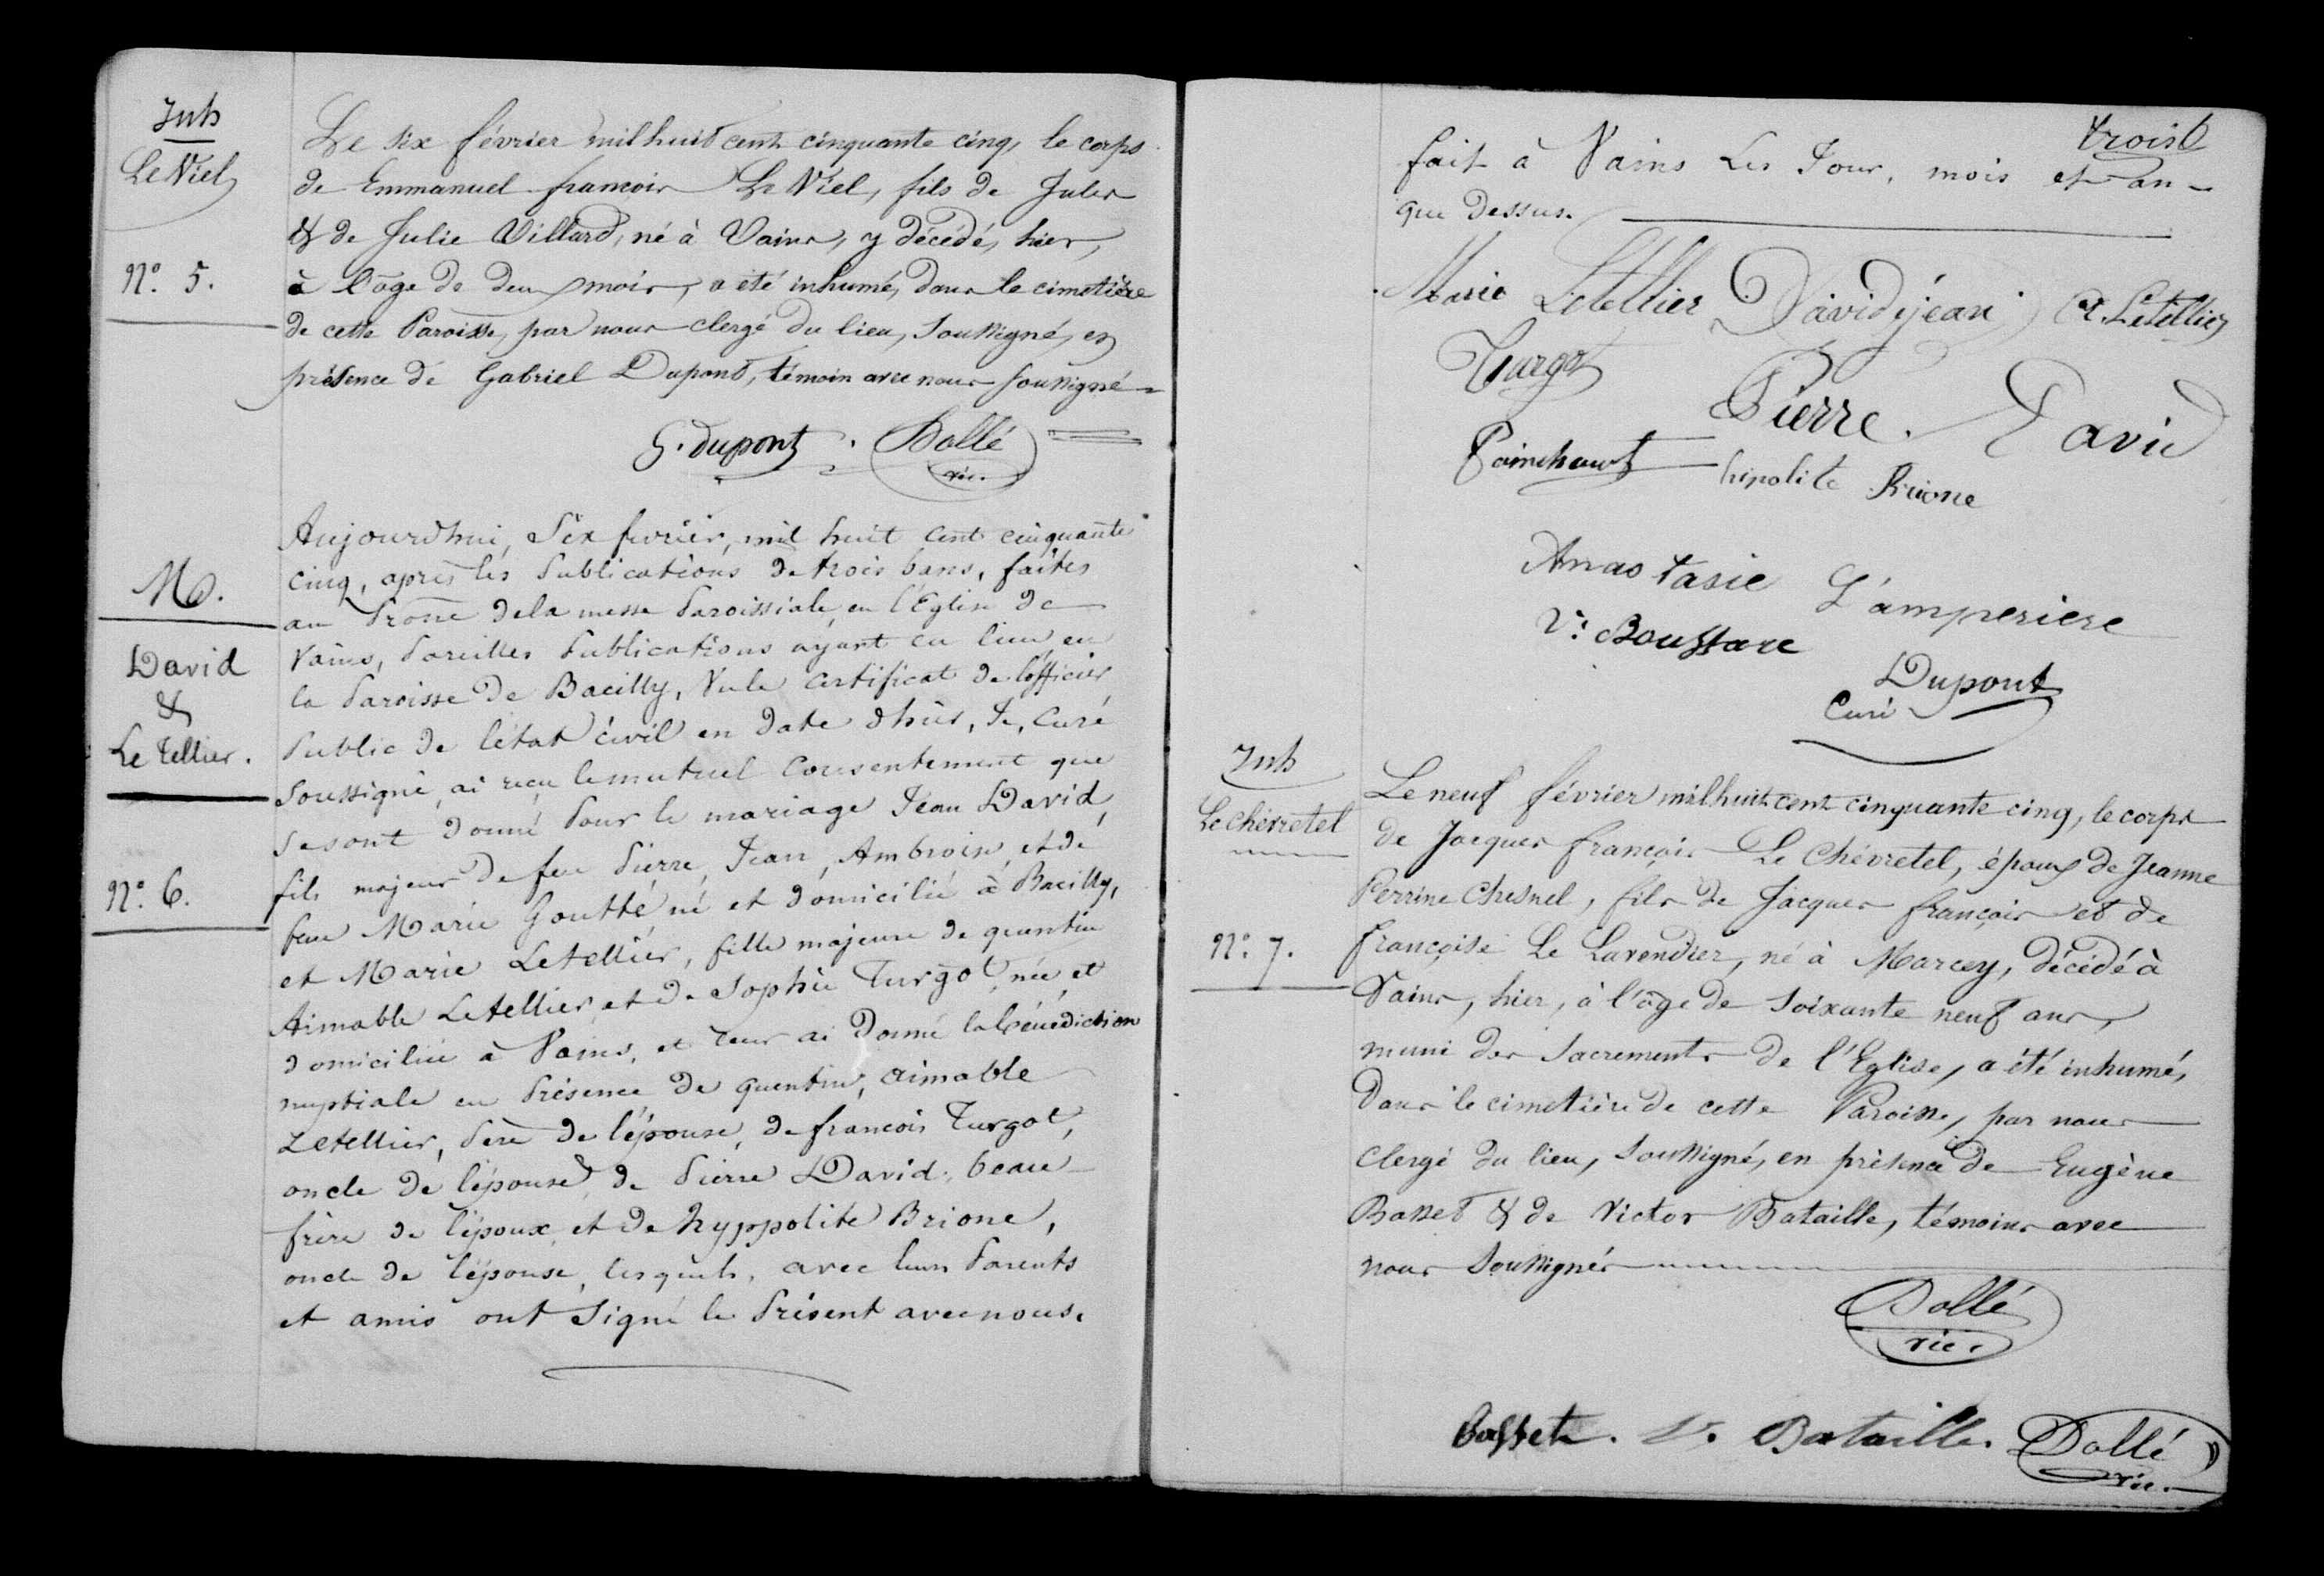 Inh
Le Viel
N.º 5.
Le six février mil huit cent cinquante cinq, le corps
de Emmanuel francois Le Viel, fils de Jules
& de Julie Villard, né à Vains, y décédé, hier,
à l'âge de deux mois, a été inhumé, dans le cimetière
de cette Paroisse, par nous clergé du lieu, soussigné, en
présence de Gabriel Dupont, témoin avec nous soussigné
G. dupont. Dollé
vic.
M.
David
&
Le tellier.
N.º 6.
Aujourd'hui, six fevrier, mil huit cent cinquante
cinq, après les publications de trois bans, faites
au prône de la messe paroissiale, en l'Eglise de
Vains, pareilles publications ayant eu lieu en
la paroisse de Bacilly, Vu le certificat de l'officier
public de l'état civil en date d'hier, Je, Curé
soussigné, ai reçu le mutuel consentement que
se sont donné pour le mariage Jean David,
fils majeur de feu pierre, Jean, Ambroise, et de
feue Marie Goutté né et domicilié à Bacilly,
et Marie Letellier, fille majeure de quentin
Aimable Letellier et de Sophie Turgot, née et
domiciliée à Vains, et leur ai donné la bénédiction
nuptiale en présence de quentin, aimable
Letellier, père de l'épouse, de francois Turgot,
oncle de l'épouse, de pierre David, beau
frère de l'époux, et de hyppolite Brione,
oncle de l'épouse, lesquels, avec leurs parents
et amis ont signé le présent avec nous.
trois
fait à Vains Les Jour, mois et an
que dessus.
Marie Letellier David jéan Letellier
Turgot Pierre. David
Painchaut hipolite Brione
Anastasie L'amperiere
Dupont
Curé
Inh
Le Chévretel
N.º 7.
Le neuf février mil huit cent cinquante cinq, le corps
de Jacques françois Le Chévretel, époux de Jeanne
Perrine Chesnel, fils de Jacques françois et de
françoise Le Lavendier, né à Marcey, décédé à
Vains, hier, à l'âge de soixante neuf ans,
muni des Sacrements de l'Eglise, a été inhumé,
dans le cimetière de cette Paroisse, par nous
clergé du lieu, soussigné, en présence de Eugène
Basset & de Victor Bataille, témoins avec
nous soussignés
Dollé
vic.
Basset. V. Bataille. Dollé
vic.